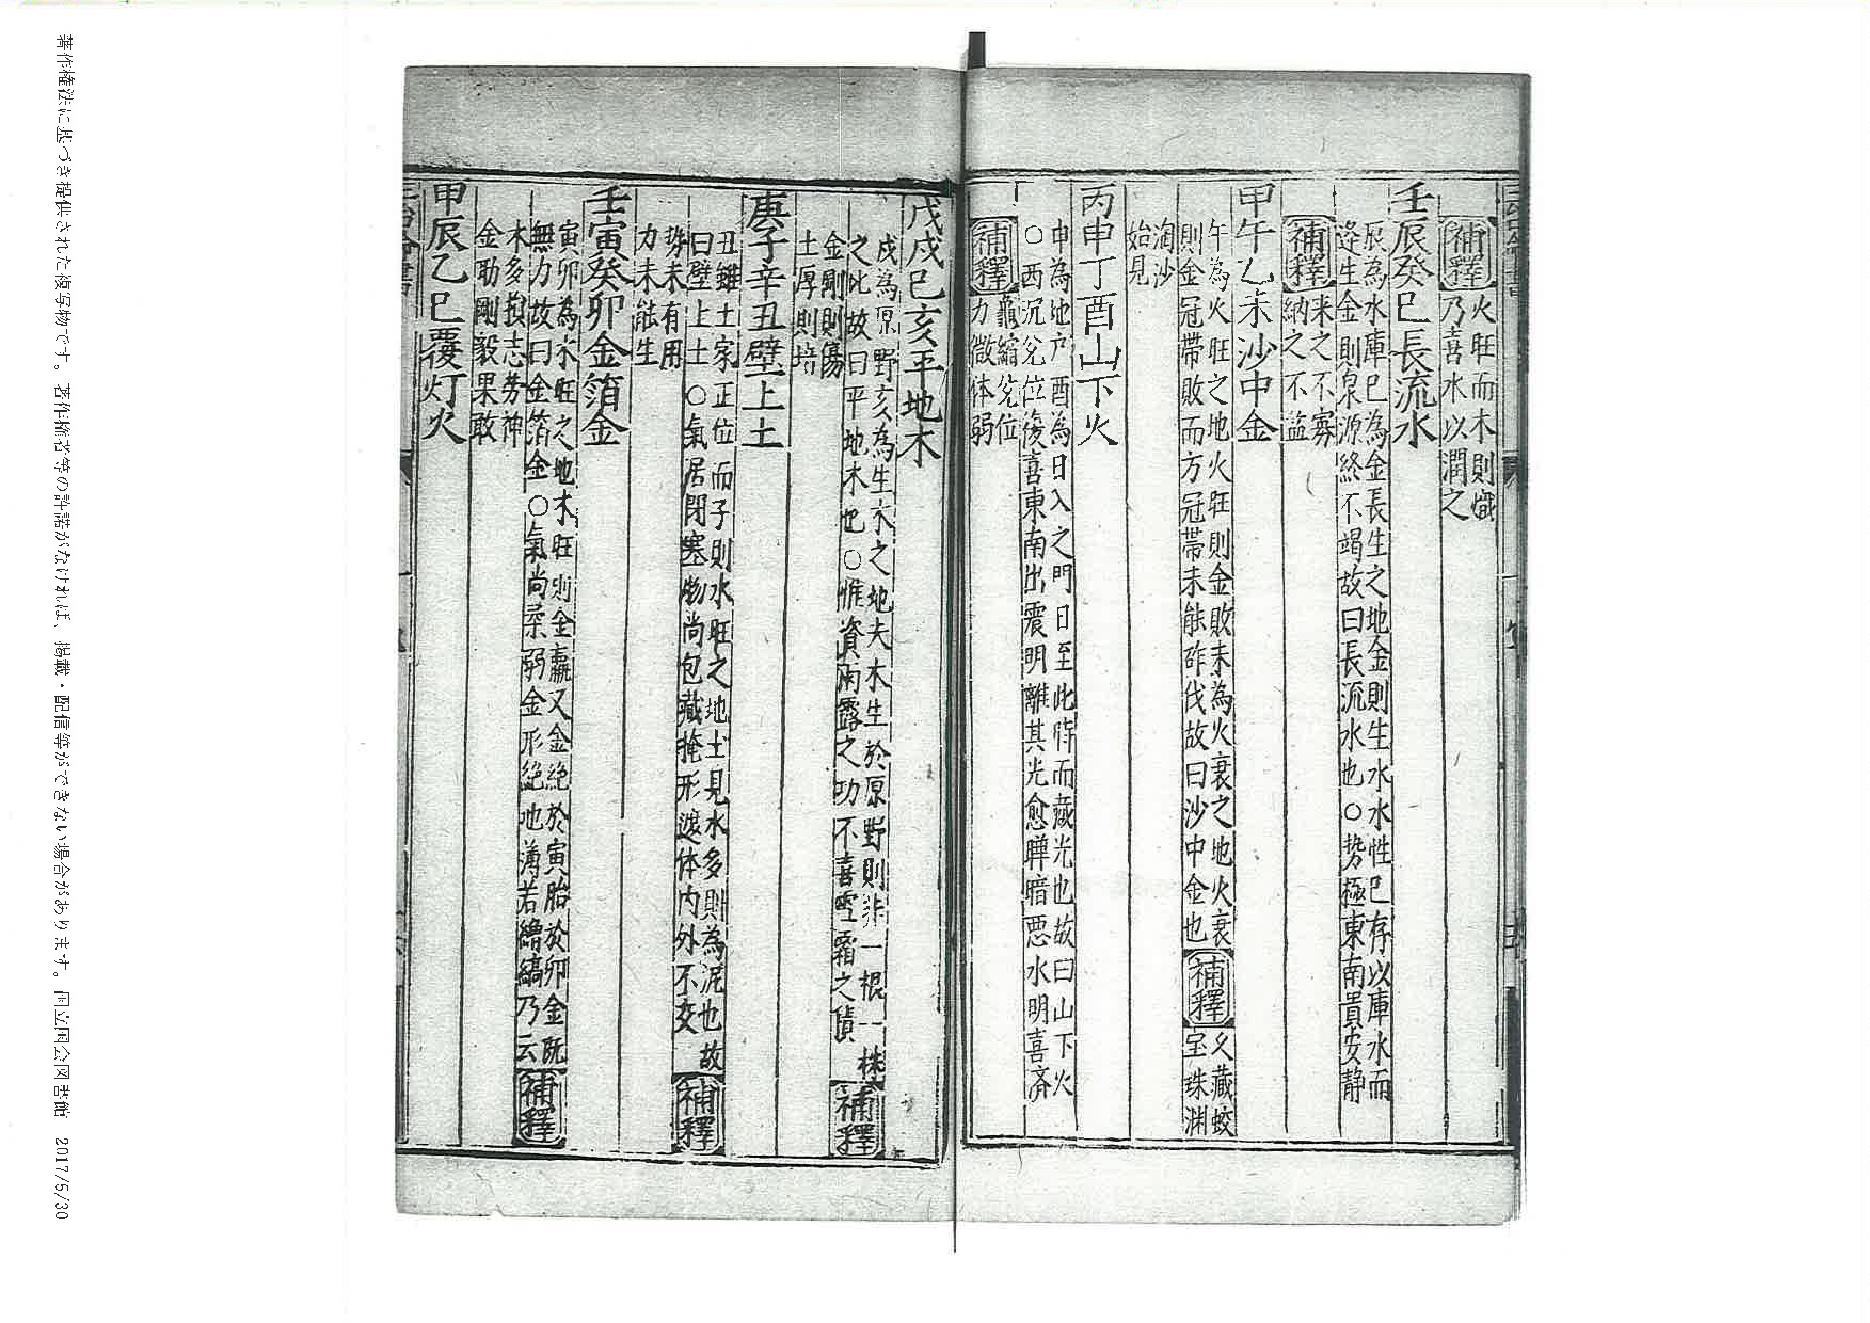 補釋
火旺而木則熾
乃喜水以潤之
壬辰癸巳長流水
辰為水庫巳為金長生之地金則生水水性已存以庫水而
逄生金則泉源終不竭故曰長流水也○勢極東南貴安靜
補釋
来之不寡
納之不溢
甲午乙未沙中金
午為火旺之地火旺則金敗未為火衰之地火衰
則金冠帶敗而方冠帶未能斫伐故曰沙中金也
補釋
久藏蛟
宝珠渊
淘沙
始見
丙申丁酉山下火
申為地户酉為日入之門日至此時而藏光也故曰山下火
○西沉兊位復喜東南出震明離其光愈曄暗惡水明喜齐
補釋
龜縮兊位
力微体弱
戊戌己亥平地木
戌為原野亥為生木之地夫木生於原野則非一棍一株
之比故曰平地木也○惟資雨露之功不喜雪霜之積
補釋
金剛則傷
土厚則培
庚子辛丑壁上土
丑雖土家正位而子則水旺之地土見水多則為泥也故
曰壁上土○氣居閉塞物尚包藏掩形遮体内外不交
補釋
势未有用
力未能生
壬寅癸卯金箔金
寅卯為木旺之地木旺則金羸又金绝於寅胎於卯金既
無力故曰金箔金○氣尚柔弱金形绝地薄若繒縞乃云
補釋
木多損志劳神
金助剛毅果敢
甲辰乙巳覆灯火
著作権法に基づき提供された複写物です。著作権者等の許諾がなければ、掲載・配信等ができない場合があります。国立国会図書館 2017/5/30